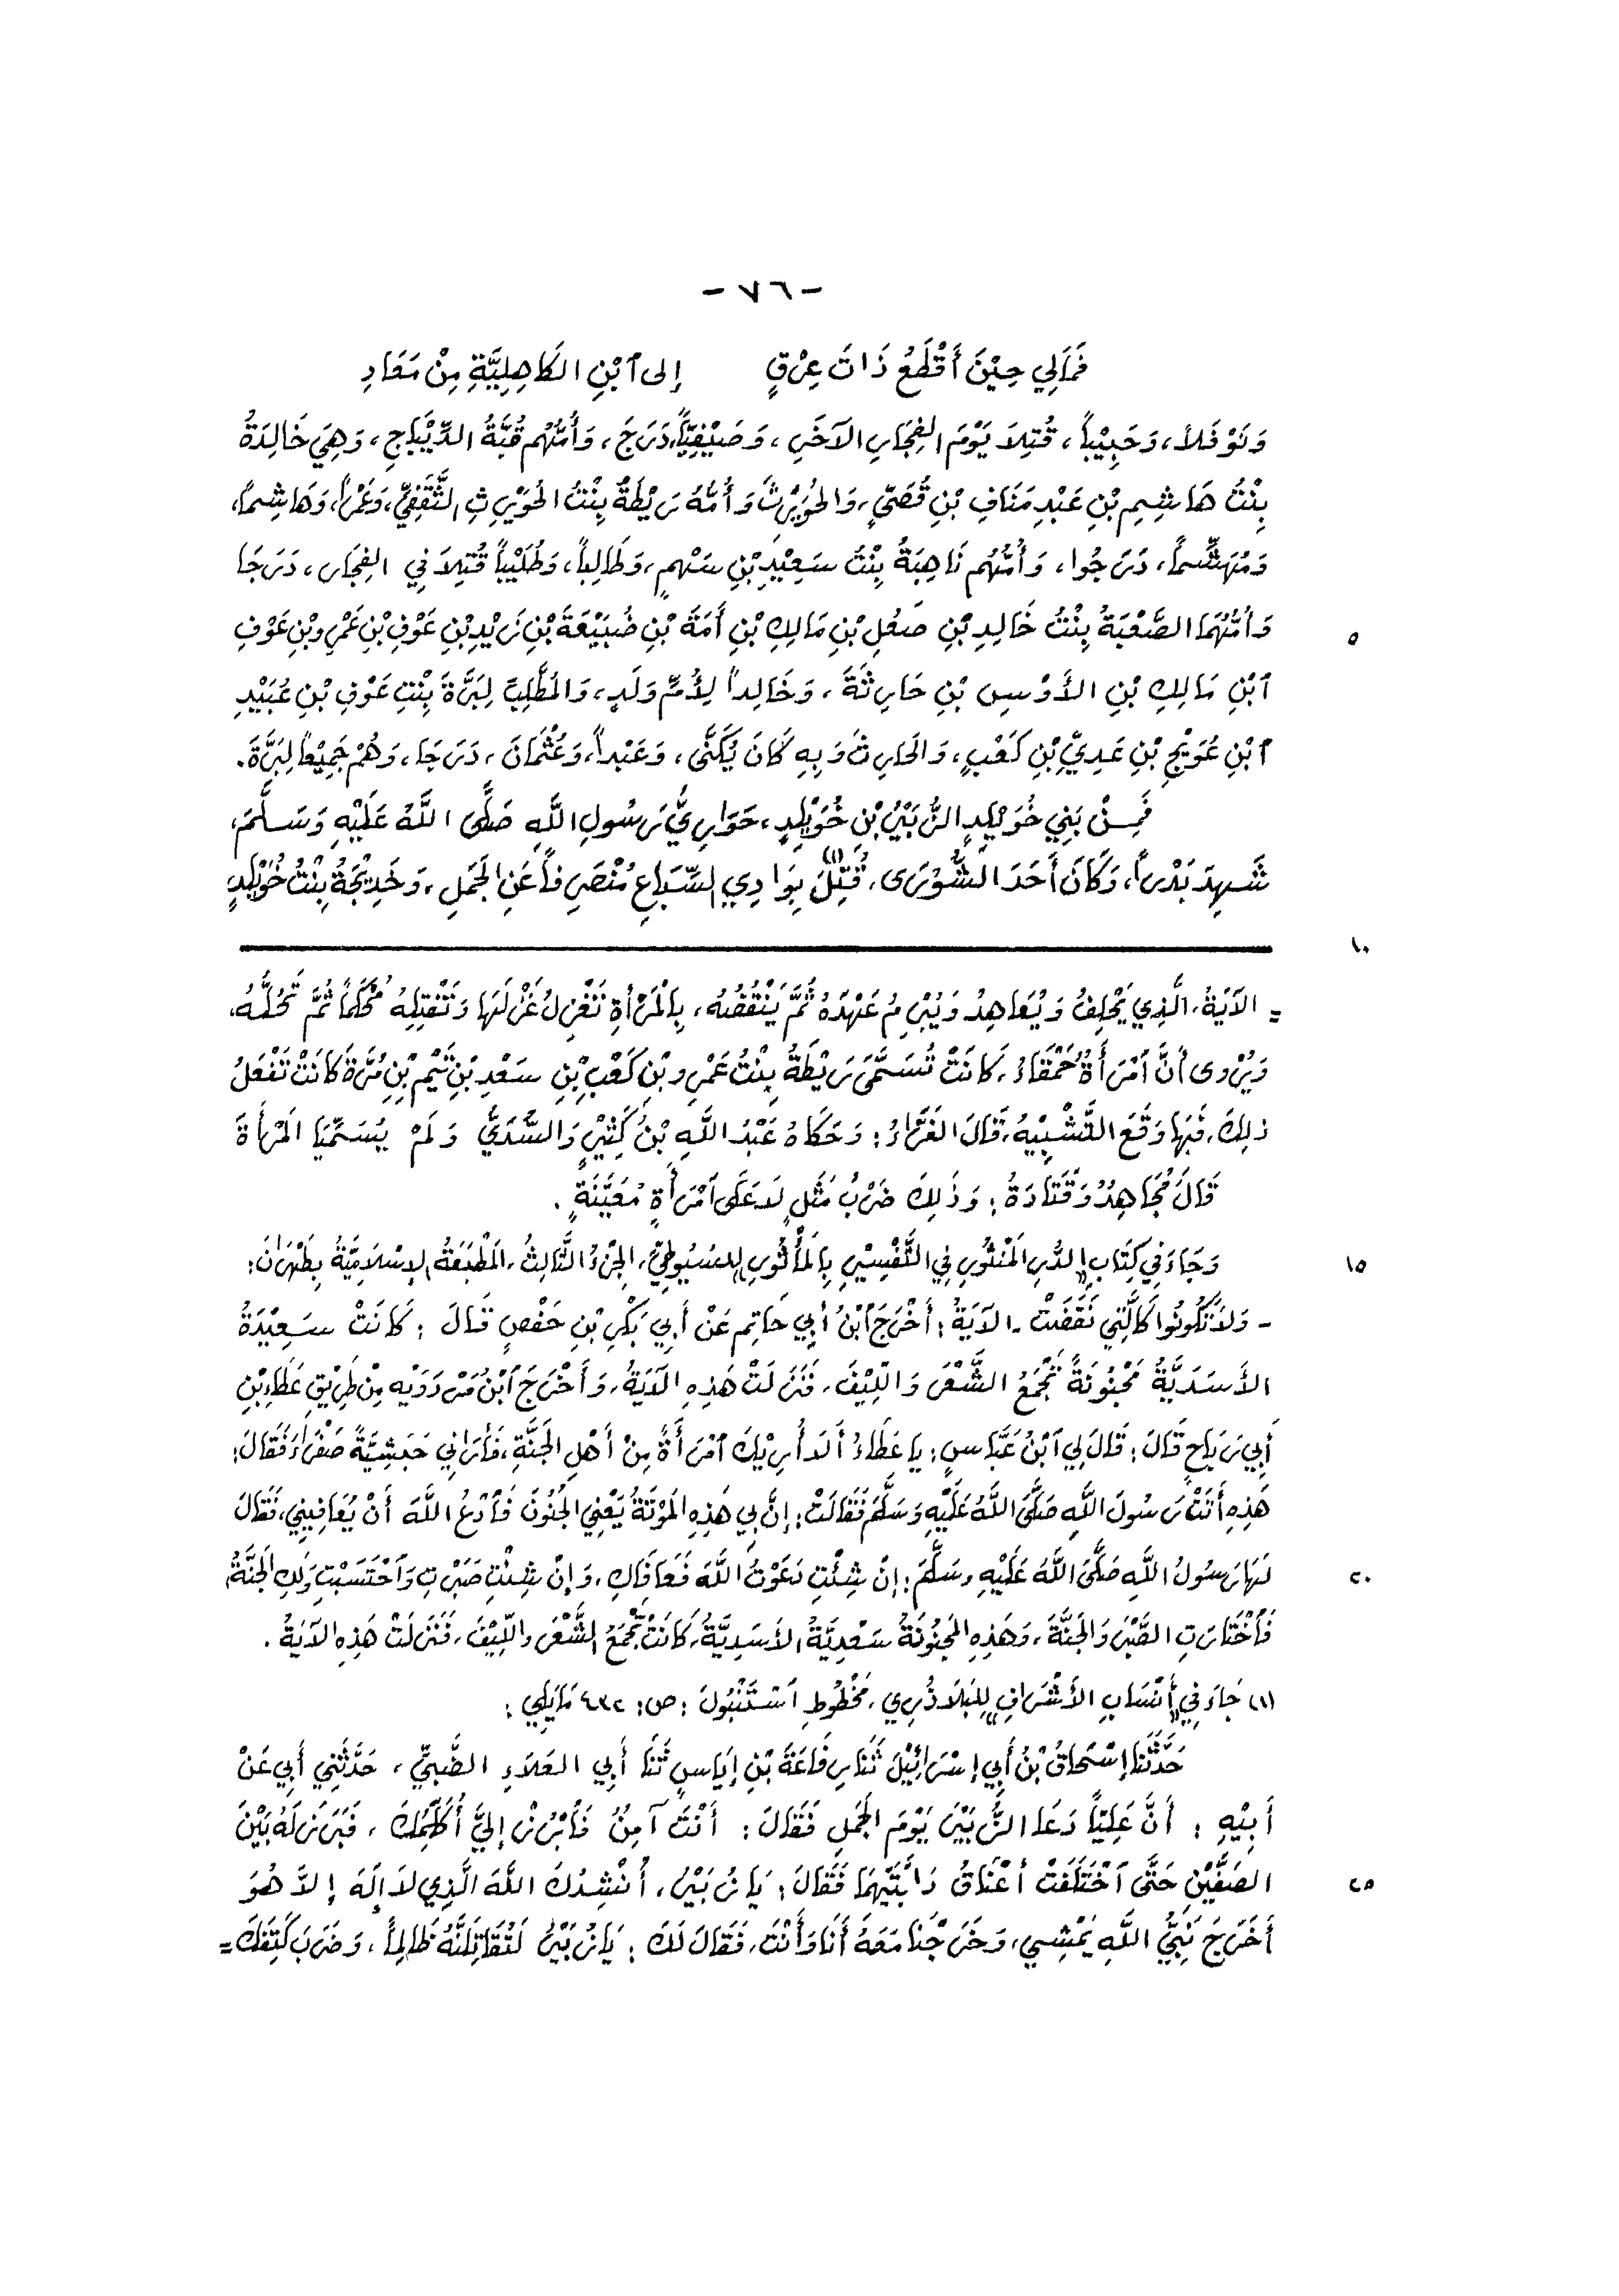 - ٧٦ -
فَمَالِي حِيْنَ أَقْطَعُ ذَاتَ عِرْقٍ إلى ٱبْنِ الكَاهِلِيَّةِ مِنْ مَعَادِ
وَنَوْفَلاً، وَحَبِيْباً، قُتِلاَ يَوْمَ الفِجَارِ الآخَرِ، وَصَيْفِيَّاً، دَرَجَ، وَأُمُّهُم قُبَّةُ الدِّيْبَاجِ، وَهِيَ خَالِدَةُ
بِنْتُ هَاشِمِ بْنِ عَبْدِ مَنَافِ بْنِ قُصَيٍّ، وَالحُوَيْرِثَ وَأُمُّهُ رَيْطَةُ بِنْتُ الحُوَيْرِثِ الثَّقَفِيِّ، وَعَمْرَاً، وَهَاشِماً،
وَمُهَشِّماً، دَرَجُوا، وَأُمُّهُم نَاهِيَةُ بِنْتُ سَعِيْدِ بْنِ سَهْمٍ، وَطَالِباً، وَطُلَيْباً قُتِلاَ فِي الفِجَارِ، دَرَجَا
وَأُمُّهُمَا الصَّعْبَةُ بِنْتُ خَالِدِ بْنِ صَعْلِ بْنِ مَالِكِ بْنِ أَمَةَ بْنِ ضُبَيْعَةَ بْنِ زَيْدِ بْنِ عَوْفِ بْنِ عَمْرِو بْنِ عَوْفِ
٥
ٱبْنِ مَالِكِ بْنِ الأَوْسِ بْنِ حَارِثَةَ، وَخَالِداً لِأُمِّ وَلَدٍ، وَالمُطَّلِبَ لِبَرَّةَ بِنْتِ عَوْفِ بْنِ عُبَيْدِ
ٱبْنِ عُوَيْجِ بْنِ عَدِيِّ بْنِ كَعْبٍ، وَالحَارِثَ وَبِهِ كَانَ يُكَنَّى، وَعَبْداً، وَعُثْمَانَ، دَرَجَا، وَهُمْ جَمِيْعاً لِبَرَّةَ.
فَمِنْ بَنِي خُوَيْلِدٍ الزُّبَيْرُ بْنِ خُوَيْلِدٍ، حَوَارِيُّ رَسُولِ اللَّهِ صَلَّى اللَّهُ عَلَيْهِ وَسَلَّمَ،
شَهِدَ بَدْراً، وَكَانَ أَحَدَ الشُّوْرَى، قُتِلَ(١) بِوَادِي السِّبَاعِ مُنْصَرِفاً عَنِ الجَمَلِ، وَخَدِيْجَةُ بِنْتُ خُوَيْلِدٍ
١٠
= الآيَةُ، الَّذِي يَحْلِفُ وَيُعَاهِدُ وَيُبْرِمُ عَهْدَهُ ثُمَّ يَنْقُضُهُ، بِالْمَرْأَةِ تَغْزِلُ غَزْلَهَا وَتَفْتِلُهُ مُحْكَماً ثُمَّ تَحُلُّهُ،
وَيُرْوى أَنَّ ٱمْرَأَةً حَمْقَاءَ، كَانَتْ تُسَمَّى رَيْطَةُ بِنْتُ عَمْرِو بْنِ كَعْبِ بْنِ سَعْدِ بْنِ تَيْمِ بْنِ مُرَّةَ كَانَتْ تَفْعَلُ
ذلِكَ، فَبِهَا وَقَعَ التَّشْبِيْهُ، قَالَ الفَرَّاءُ: وَحَكَاهُ عَبْدُ اللَّهِ بْنُ كَثِيْرٍ وَالسُّدِّيُّ وَلَمْ يُسَمِّيَا المَرْأَةَ
قَالَ مُجَاهِدُ وَقَتَادَةُ: وَذَلِكَ ضَرْبُ مَثَلٍ لاَ عَلَى ٱمْرَأَةٍ مُعَيَّنَةٍ.
وَجَاءَ فِي كِتَابِ «الدُّرِ المَنْثُورِ فِي التَّفْسِيْرِ بِالمَأْثُورِ» لِلسُّيُوطِيِّ، الجُزْءُ الثَّالِثُ، المَطْبَعَةُ الإِسْلاَمِيَّةُ بِطَهْرَانَ:
١٥
- وَلاَ تَكُونُوا كَالَّتِي نَقَضَتْ - الآيَةُ: أَخْرَجَ ٱبْنُ أَبِي حَاتِمٍ عَنْ أَبِي بَكْرِ بْنِ حَفْصٍ قَالَ: كَانَتْ سَعِيْدَةُ
الأَسَدِيَّةُ مَجْنُونَةً تَجْمَعُ الشَّعْرَ وَاللِّيْفَ، فَنَزَلَتْ هَذِهِ الآيَةُ، وَأَخْرَجَ ٱبْنُ مَرْدَوَيْه مِنْ طَرِيْقِ عَطَاءِ بْنِ
أَبِي رَبَاحٍ قَالَ: قَالَ لِي ٱبْنُ عَبَّاسٍ: يا عَطَاءُ أَلاَ أُرِيْكَ ٱمْرَأَةً مِنْ أَهْلِ الجَنَّةِ، فَأَرَانِي حَبَشِيَّةً صَفْرَاءَ فَقَالَ:
هَذِهِ أَتَتْ رَسُولَ اللَّهِ صَلَّى اللَّهُ عَلَيْهِ وَسَلَّمَ فَقَالَتْ: إنَّ بِي هَذِهِ المَوْتَةُ يَعْنِي الجُنُونَ فَٱدْعُ اللَّهَ أَنْ يُعَافِيَنِي، فَقَالَ
لَهَا رَسُولُ اللَّهِ صَلَّى اللَّهُ عَلَيْهِ وسَلَّمَ: إنْ شِئْتِ دَعَوْتُ اللَّهَ فَعَافَاكِ، وَإنْ شِئْتِ صَبَرْتِ وَٱحْتَسَبْتِ وَلَكِ الجَنَّةُ،
٢٠
فَٱخْتَارَتِ الصَّبْرَ وَالجَنَّةَ، وَهَذِهِ المَجْنُونَةُ سَعْدِيَّةُ الأَسَدِيَّةُ، كَانَتْ تَجْمَعُ الشَّعْرَ واللِّيْفَ، فَنَزَلَتْ هَذِهِ الآيَةُ.
(١) جَاءَ فِي «أَنْسَابِ الأَشْرَافِ» لِلبَلاَذُرِي، مَخْطُوطِ ٱسْتَنْبُولَ: ص: ٤٣٢ مَايَلِي:
حَدَّثَنَا إسْحَاقُ بْنُ أَبِي إسْرَائِيْلَ ثَنَا رِفَاعَةَ بْنِ إيَاسٍ ثَنَا أَبِي العَلاَءِ الضَّبِيِّ، حَدَّثَنِي أَبِي عَنْ
أَبِيْهِ: أَنَّ عَلِيَّاً دَعَا الزُّبَيْرَ يَوْمَ الجَمَلِ فَقَالَ: أَنْتَ آمِنٌ فَٱبْرُزْ إليَّ أُكَلِّمْكَ، فَبَرَزَ لَهُ بَيْنَ
الصَفَّيْنِ حَتَّى ٱخْتَلَفَتْ أَعْنَاقُ دَابَّتَيْهِمَا فَقَالَ: يَا زُبَيْرُ، أُنْشِدُكَ اللَّهَ الَّذِي لاَ إلَهَ إلاَّ هُوَ
٢٥
أَخَرَجَ نَبِيُّ اللَّهِ يَمْشِي، وَخَرَجْنَا مَعَهُ أَنَا وَأَنْتَ، فَقَالَ لَكَ: يَا زُبَيْرُ لَتُقَاتِلَنَّهُ ظَالِماً، وَضَرَبَ كَتِفَكَ =